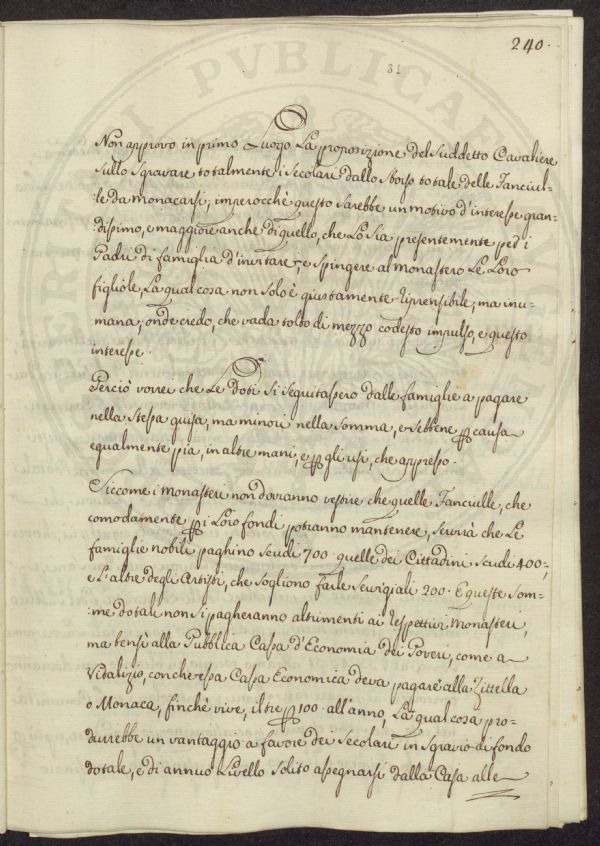 240.
31
Non approvo in primo Luogo La proposizione del Suddetto Cavaliere
Sullo Sgravare totalmente i Secolari dallo Sborso totale delle Fanciul-
:le da monacarsi, imperocchè questo sarebbe un motivo d'interesse gran-
:dissimo, e maggiore anche di quello, che Lo Sia presentemente ped i
Padri di famiglia d'invitare, e Spingere al Monastero Le Loro
figliole, La qual cosa non Solo è giustamente riprensibile, ma inu-
mana; onde credo, che vada tolto di mezzo codesto impulso, e questo
interesse.
Perciò vorrei che Le doti Si Seguitassero dalle famiglie a pagare
nella Stessa guisa, ma minori nella Somma, e Sebbene per causa
egualmente pia, in altre mani, e per gli usi, che appresso.
Siccome i Monasteri non dovranno vestire che quelle Fanciulle, che
comodamente per i Loro fondi potranno mantenere, Servirà che Le
famiglie nobili paghino Scudi 700. quelle dei Cittadini Scudi 400.,
e L'altre degli Artisti, che Sogliono farle Servigiali 200. E queste Som-
:me dotali non Si pagheranno altrimenti ai respettivi Monasteri,
ma bensì alla Pubblica Cassa d'Economia dei Poveri, come a
Vitalizio, con che essa Cassa Economica deva pagare alla Zittella
o Monaca, finchè vive, il tre per 100. all'anno, La qual cosa pro-
durrebbe un vantaggio a favore dei Secolari in Sgravio di fondo
dotale, e di annuo Livello Solito assegnarsi dalla Casa alle